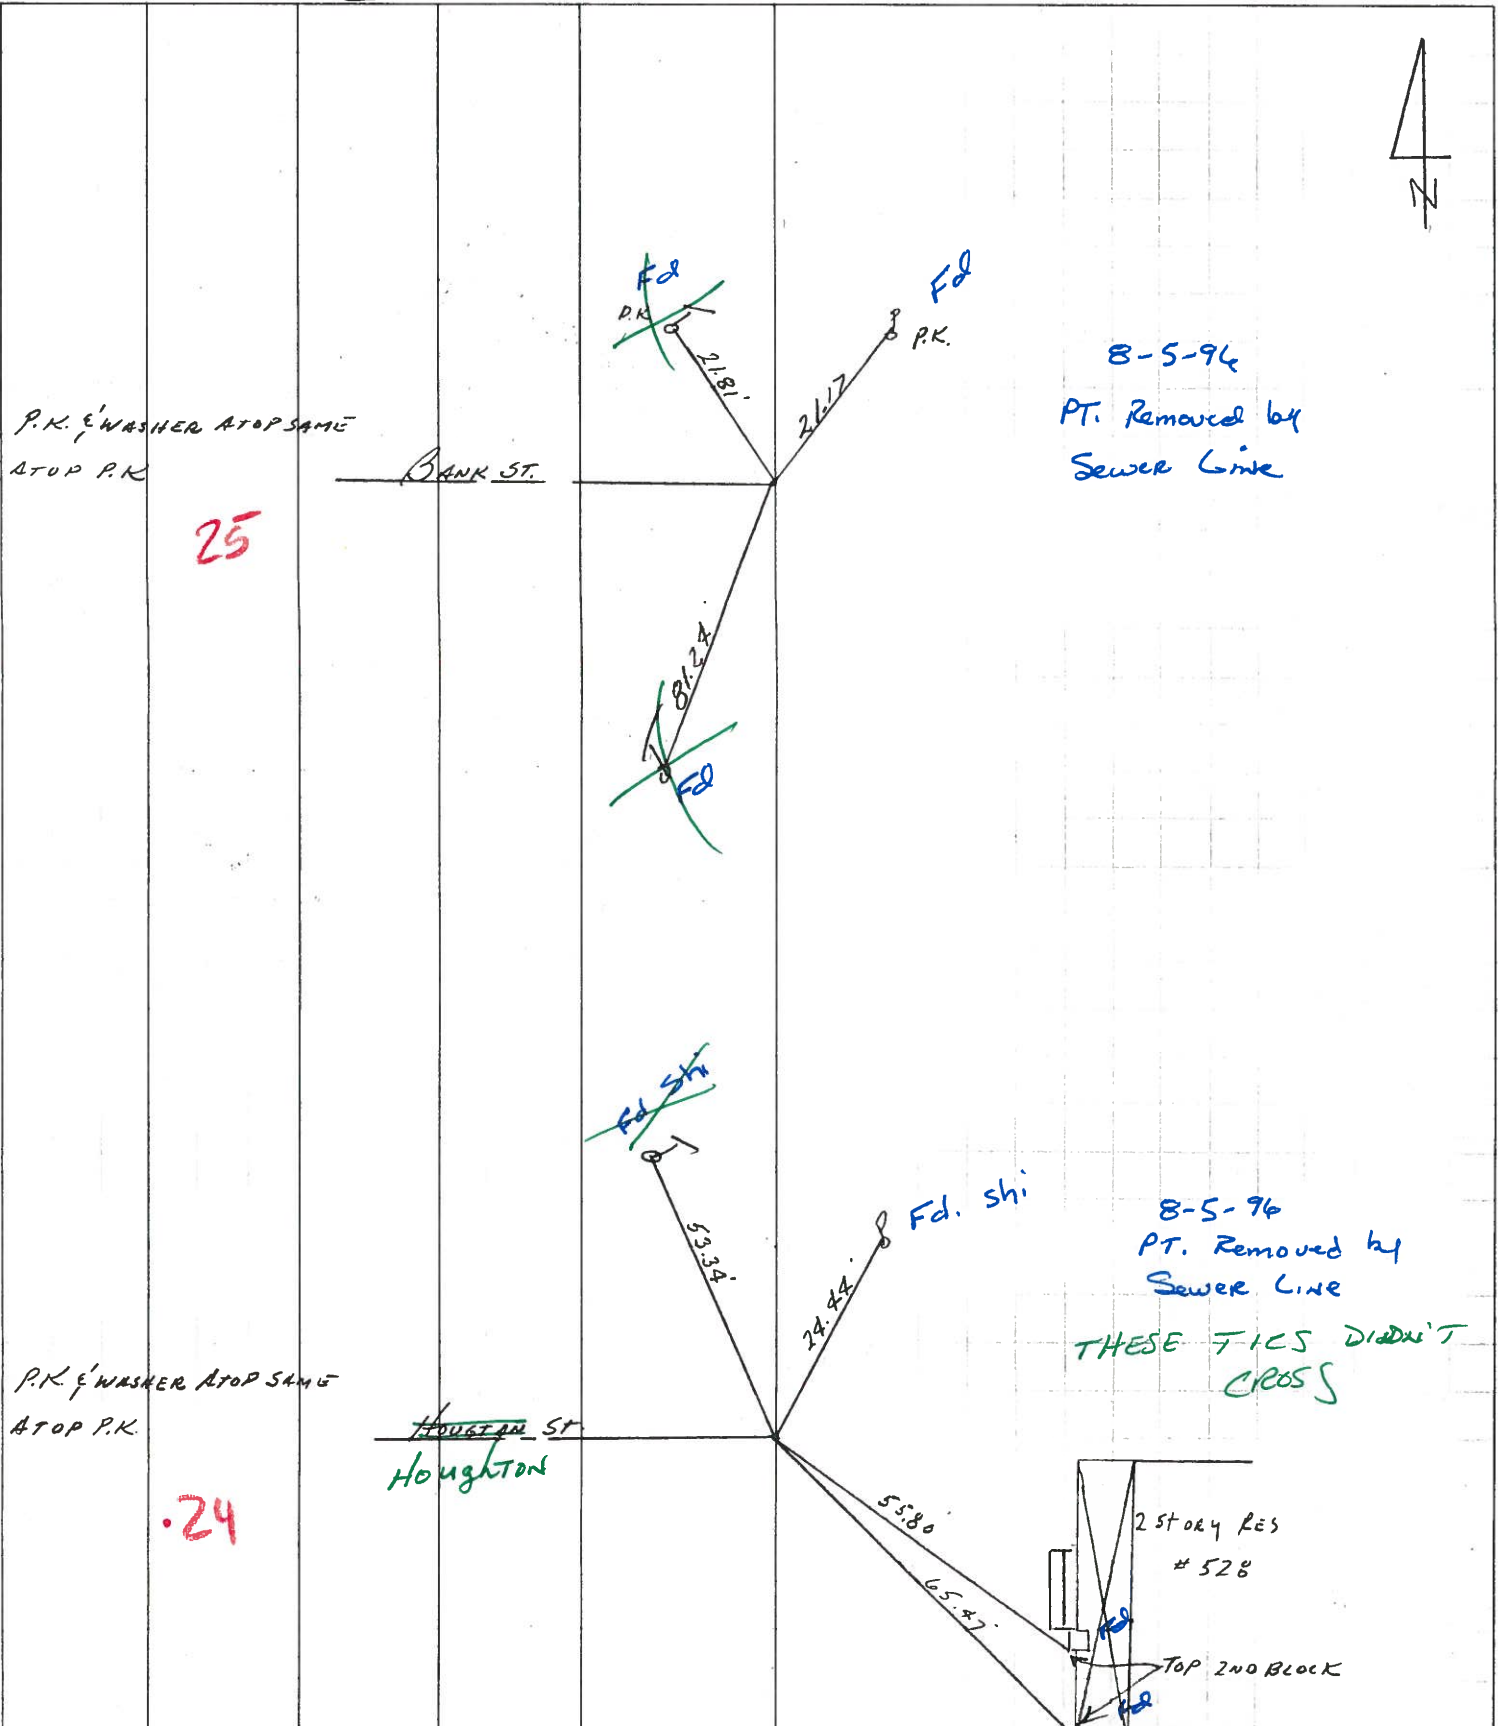 N
Fd
P.K
Fd
P.K.
21.81'
21.17
8-5-96
PT. Removed by
Sewer Line
P.K. & WASHER ATOP SAME
ATOP P.K
BANK ST.
25
81.24
Fd
Fd Shi
Fd. Shi
53.34'
24.44'
8-5-96
PT. Removed by
Sewer Line
THESE TIES DIDN'T
CROSS
P.K. & WASHER ATOP SAME
ATOP P.K.
HOUGTAN ST.
HOUGHTON
.24
55.80'
65.47'
2 STORY RES
# 528
Fd
TOP 2ND BLOCK
Fd